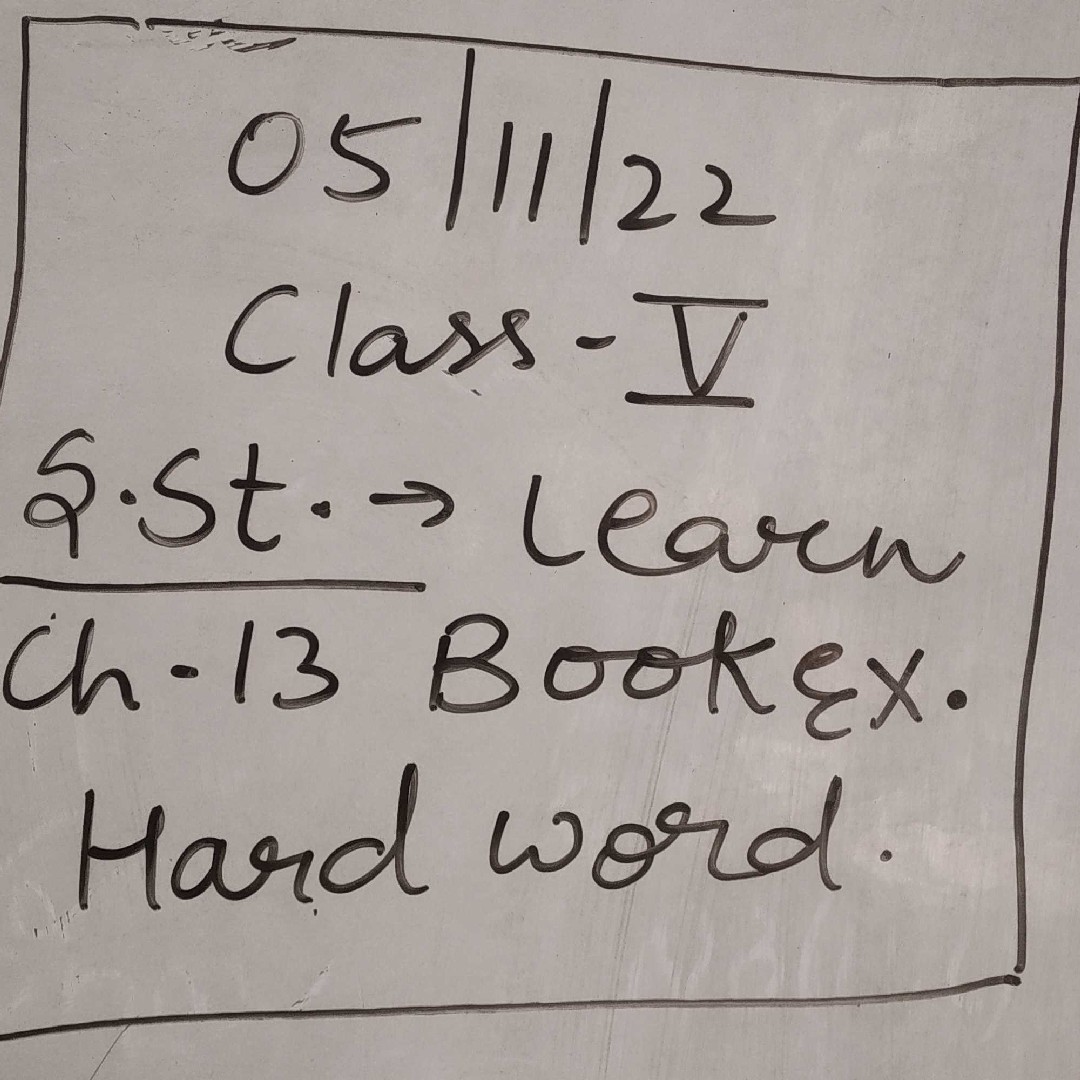 05/11/22
Class - V
S.St. → Learn
Ch-13 Book Ex.
Hard word.